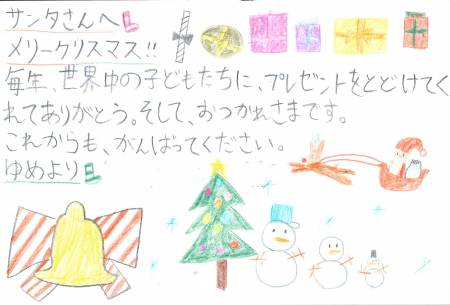 サンタさんへ
メリークリスマス!!
毎年、世界中の子どもたちに、プレゼントをとどけてく
れてありがとう。そして、おつかれさまです。
これからも、がんばってください。
ゆめより